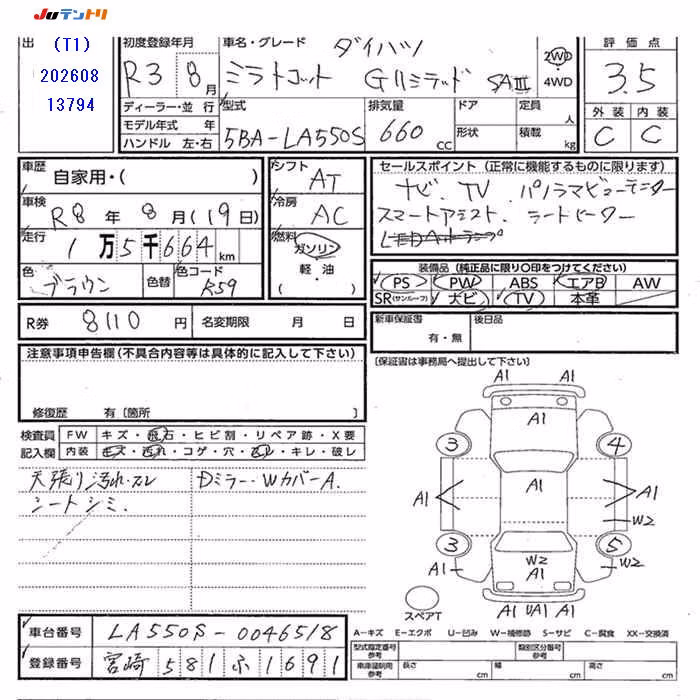 JUテントリ
出 (T1)
202608
13794
初度登録年月 R3 8月
車名・グレード ダイハツ
ミラトコット Gリミテッド SAⅢ
2WD
4WD
評価点
3.5
外装 内装
C C
ディーラー・並行
モデル年式 年
ハンドル 左・右
型式
5BA-LA550S
排気量
660 cc
ドア 定員 人
形状 積載 kg
車歴
自家用・( )
車検
R8年 8月(19日)
走行
1万5千664km
色
ブラウン
色替
色コード
R59
シフト
AT
冷房
AC
燃料
ガソリン
軽・油
( )
セールスポイント(正常に機能するものに限ります)
ナビ. TV. パノラマビューモニター
スマートアシスト. シートヒーター
装備品(純正品に限り〇印をつけてください)
PS PW ABS エアB AW
SR(サンルーフ) ナビ TV 本革
R券 8110円
名変期限 月 日
新車保証書
有・無
後日品
注意事項申告欄(不具合内容等は具体的に記入して下さい)
修復歴 有〔箇所 〕
〔保証書は事務局へ提出して下さい〕
検査員
記入欄
FW キズ・飛石・ヒビ割・リペア跡・X要
内装 キズ・汚れ・コゲ・穴・スレ・キレ・破レ
天張り汚れ・スレ
シートシミ.
Dミラー・WカバーA.
A1 A1
A1
3 4
A1 A1 A1
W2
3 5
A1 W2 A1 W2 A1
A1 UA1 A1
スペアT
車台番号 LA550S-0046518
登録番号 宮崎 581 ふ 1691
A-キズ E-エクボ U-凹み W-補修跡 S-サビ C-腐食 XX-交換済
型式指定番号 参考
類別区分番号 参考
車庫証明用 参考
長さ cm 幅 cm 高さ cm